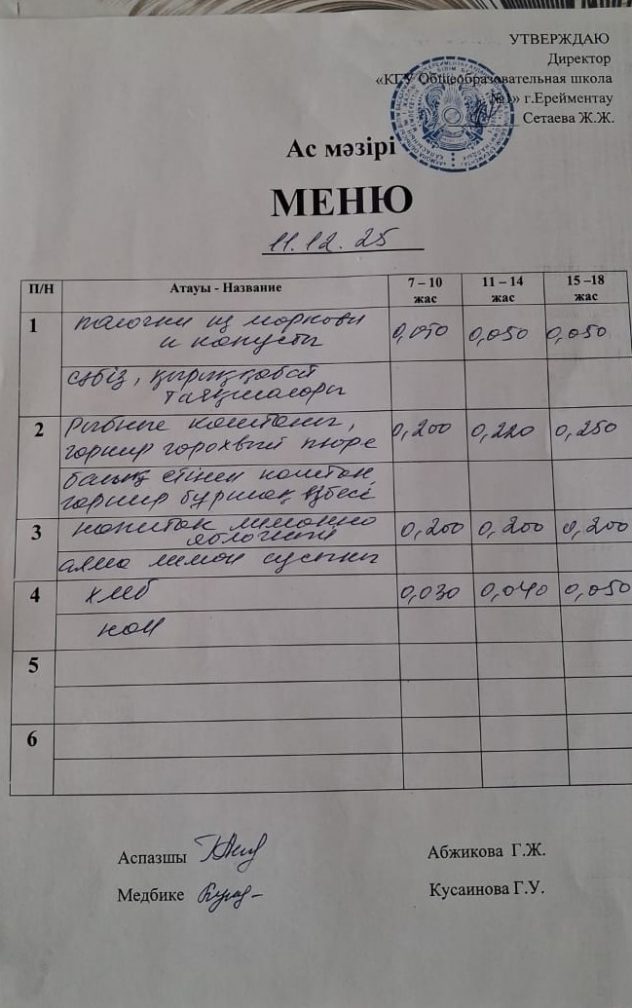 УТВЕРЖДАЮ
Директор
«КГУ Общеобразовательная школа
№1» г.Ерейментау
Сетаева Ж.Ж.
Ас мәзірі
МЕНЮ
11.12.25
П/Н Атауы - Название 7 – 10 жас 11 – 14 жас 15 –18 жас
1 палочки из моркови 0,050 0,050 0,050
и капусты
сәбіз, қырыққабат
таяқшалары
2 Рыбные коштаны, 0,200 0,220 0,250
гарнир горохвый пюре
балық етінен коштан,
гарнир бұршақ езбесі
3 напиток лимонно 0,200 0,200 0,200
яблочный
алма лимон сусыны
4 хлеб 0,030 0,040 0,050
нан
5
6
Аспазшы Абжикова Г.Ж.
Медбике Кусаинова Г.У.